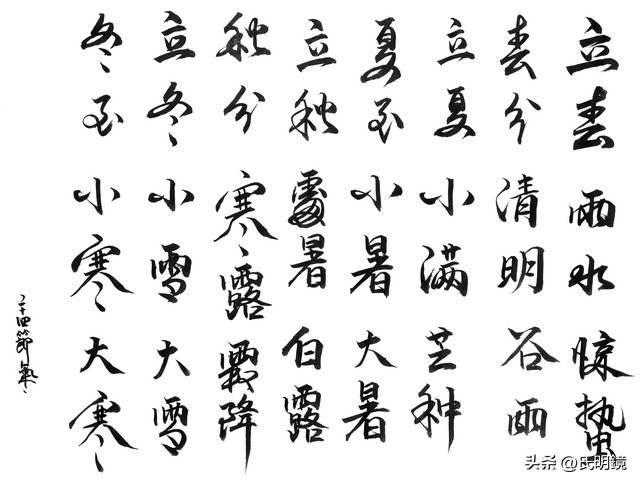 立春雨水惊蛰
春分清明谷雨
立夏小满芒种
夏至小暑大暑
立秋處暑白露
秋分寒露霜降
立冬小雪大雪
冬至小寒大寒
二十四節氣
头条 @氏明鏡